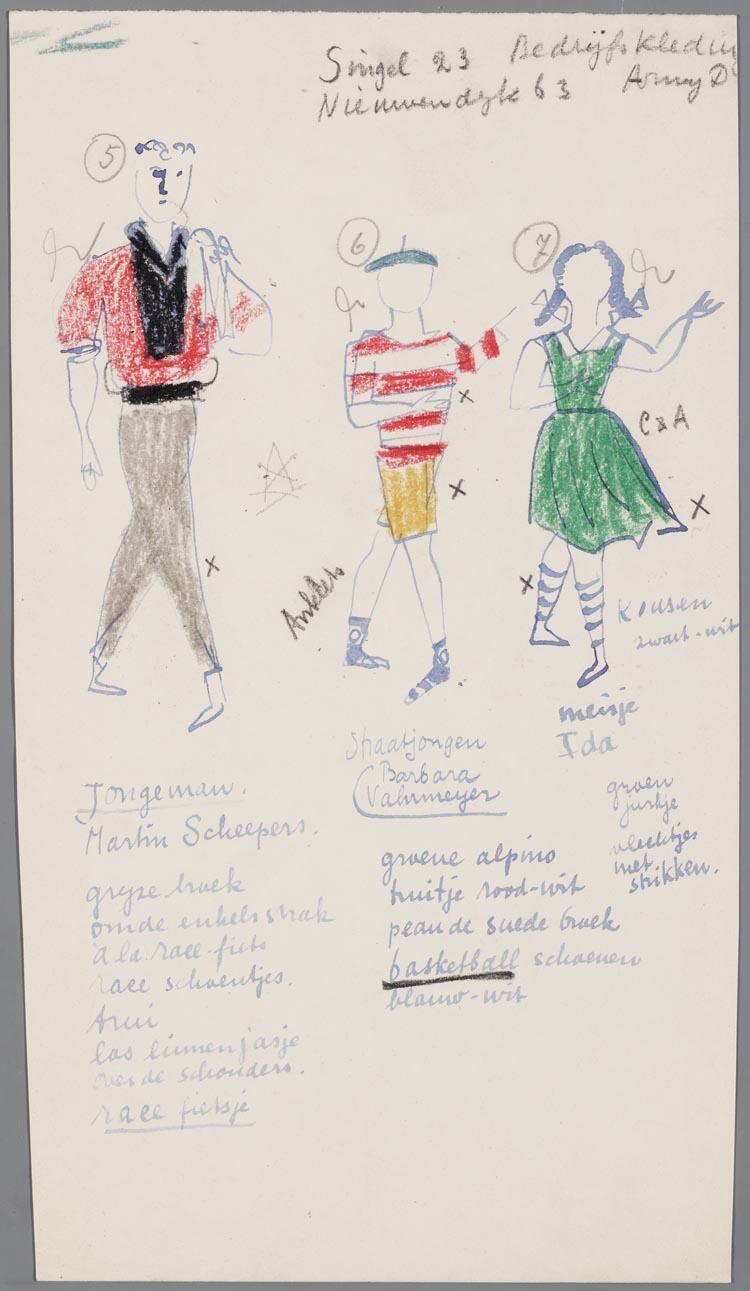 Singel 23 Bedrijfskledin
Nieuwendyk 63 Army D
5
6
7
C&A
Anklets
Kousen
zwart-wit
meisje
Ida
groen
jurkje
vlechtjes
met
strikken.
Staatjongen
(Barbara
Vahrmeyer
groene alpino
truitje rood-wit
peau de suede broek
basketball schoenen
blauw-wit
Jongeman.
Martin Scheepers.
gryze broek
om de enkels strak
à la race-fiets
race schoentjes.
trui
los linnen jasje
over de schouders.
race fietsje